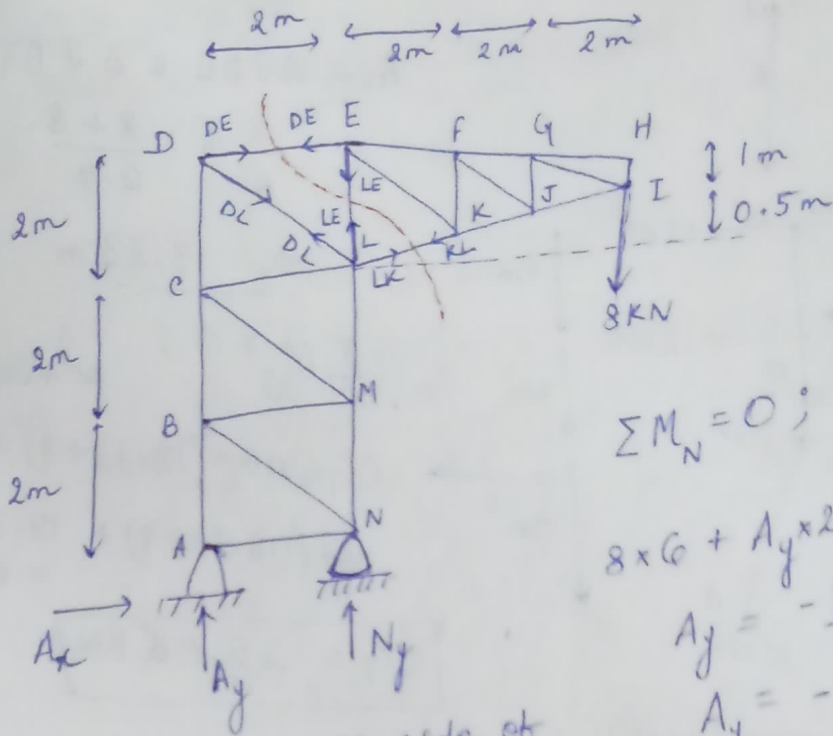 2m
2m 2m 2m
D DE DE E F G H
1m
0.5m
2m
DL LE K J I
DL LE L
LK KL
C
8KN
2m
M
B
ΣM_N = 0 ;
2m
N
A
8×6 + Ay×2
Ax
Ay
Ny
Ay = -